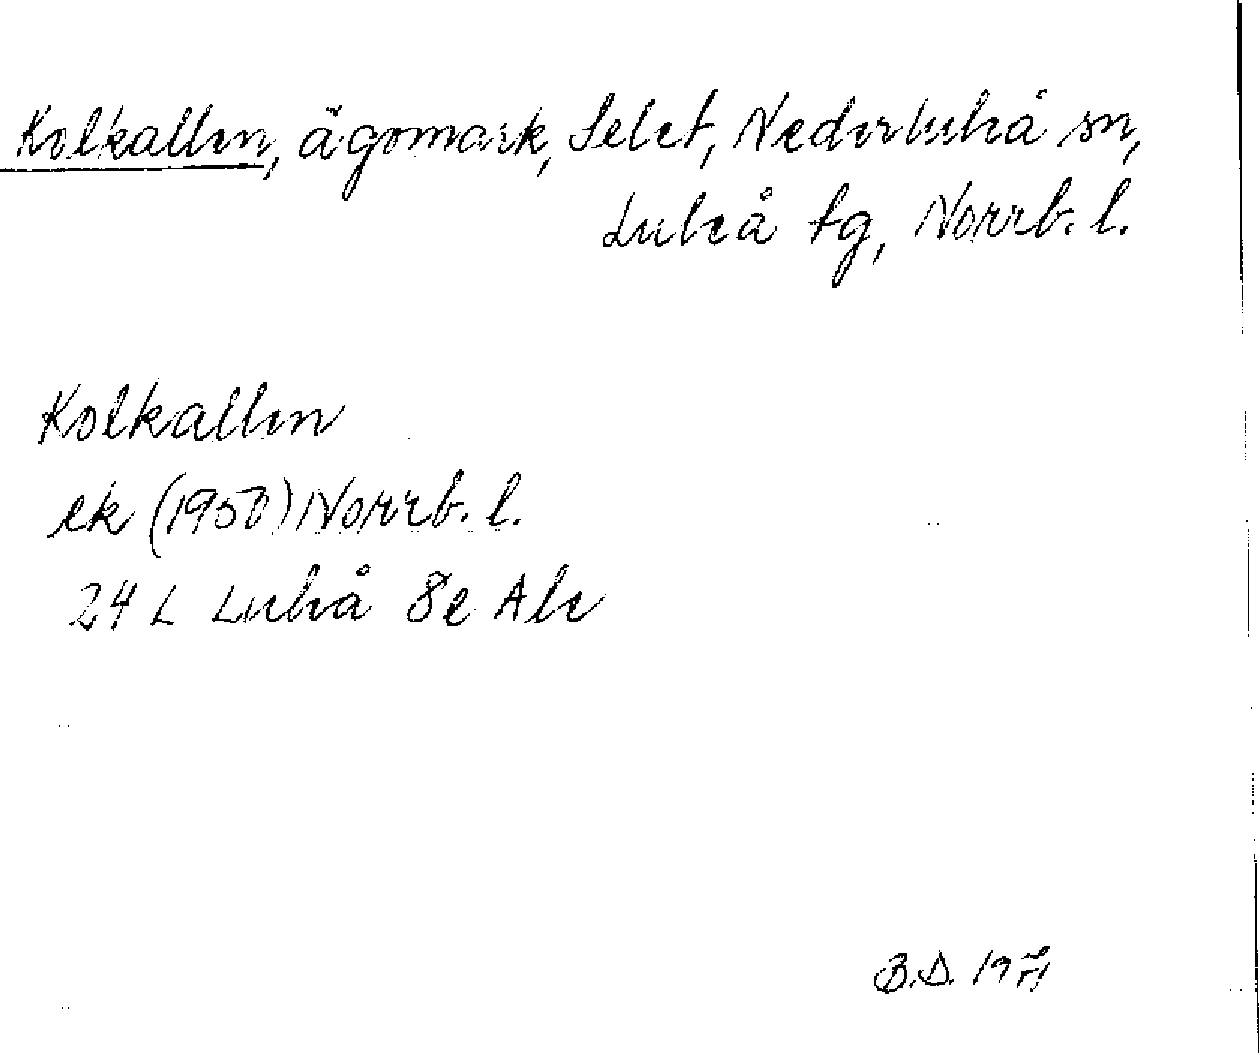 Kolkallen, ägomark, Selet, Nederluleå sn,
Luleå tg, Norrb. l.
Kolkallen
ek (1950) Norrb. l.
24 L Luleå 8e Ale
B.D. 1971